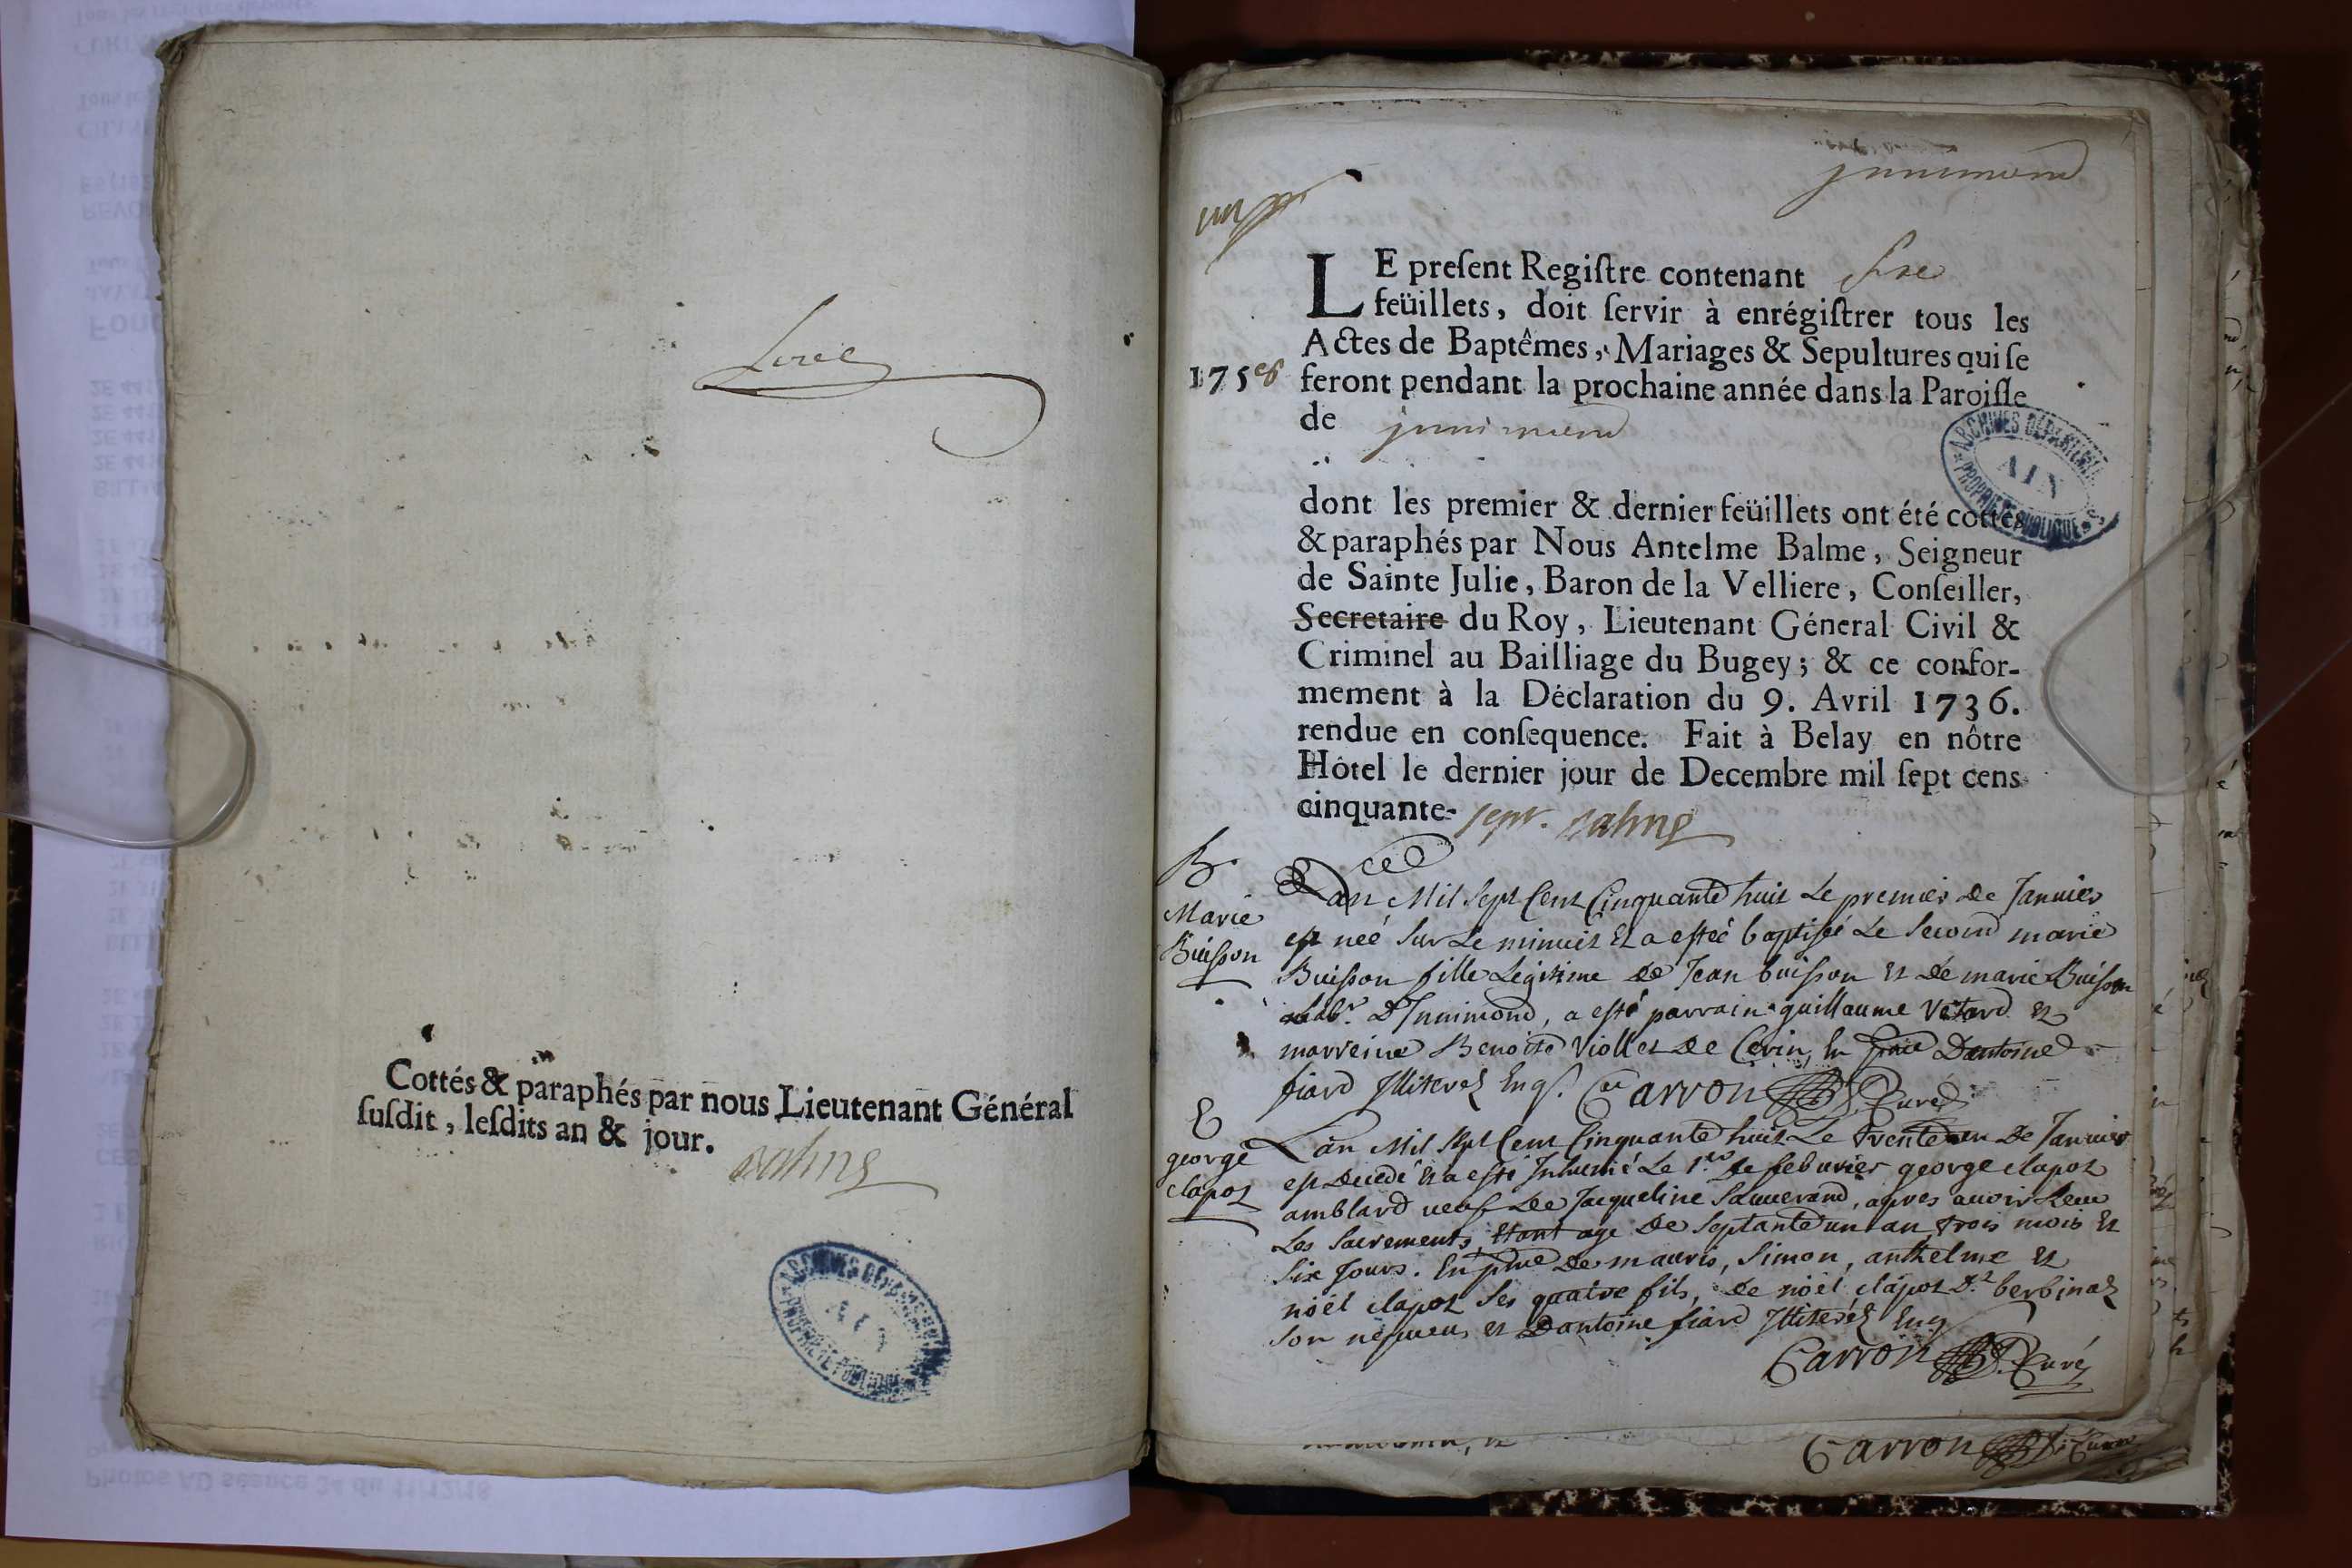 Cottés & paraphés par nous Lieutenant Général
ſuſdit, leſdits an & jour.
ARCHIVES DEPARTEMENT
AIN
PROPRIETE PUBLIQUE
Innimond
LE preſent Regiſtre contenant ſixe
feüillets, doit ſervir à enrégiſtrer tous les
Actes de Baptêmes, Mariages & Sepultures qui ſe
1758 feront pendant la prochaine année dans la Paroiſſe
de Innimond
ARCHIVES DEPARTEMENT
AIN
PROPRIETE PUBLIQUE
dont les premier & dernier feüillets ont été cottés
& paraphés par Nous Antelme Balme, Seigneur
de Sainte Julie, Baron de la Velliere, Conſeiller,
Secretaire du Roy, Lieutenant Géneral Civil &
Criminel au Bailliage du Bugey; & ce confor-
mement à la Déclaration du 9. Avril 1736.
rendue en conſequence. Fait à Belay en nôtre
Hôtel le dernier jour de Decembre mil ſept cens
cinquante-sept. Balme
B
Marie
Buisson
L'an Mil Sept Cent Cinquante huit Le premier De Janvier
est neé Sur Le minuit Et a esteé baptisée Le Second marie
Buisson fille Legitime De Jean buisson et De marie Buisson
D'Innimond, a esté parrain guillaume Vetard et
marreine Benoite Viollet De Cerin, En pnce D'antoine
fiard Illiterez Enqs. Carron Curé
E
george
clapot
L'an Mil Sept Cent Cinquante huit Le trente un De Janvier
est Decedé et a esté Inhumé Le 1.er De febvrier george clapot
amblard veuf De Jacqueline Sauverand, apres avoir Reçu
Les Sacrements, Etant agé De Septante un an trois mois Et
Six Jours. En pnce De mauris, Simon, anthelme et
noël clapot Ses quatre fils, De noël clapot Dt berbinat
Son nepveu, et D'antoine fiard Illiterez Enq
Carron Curé
Carron Curé